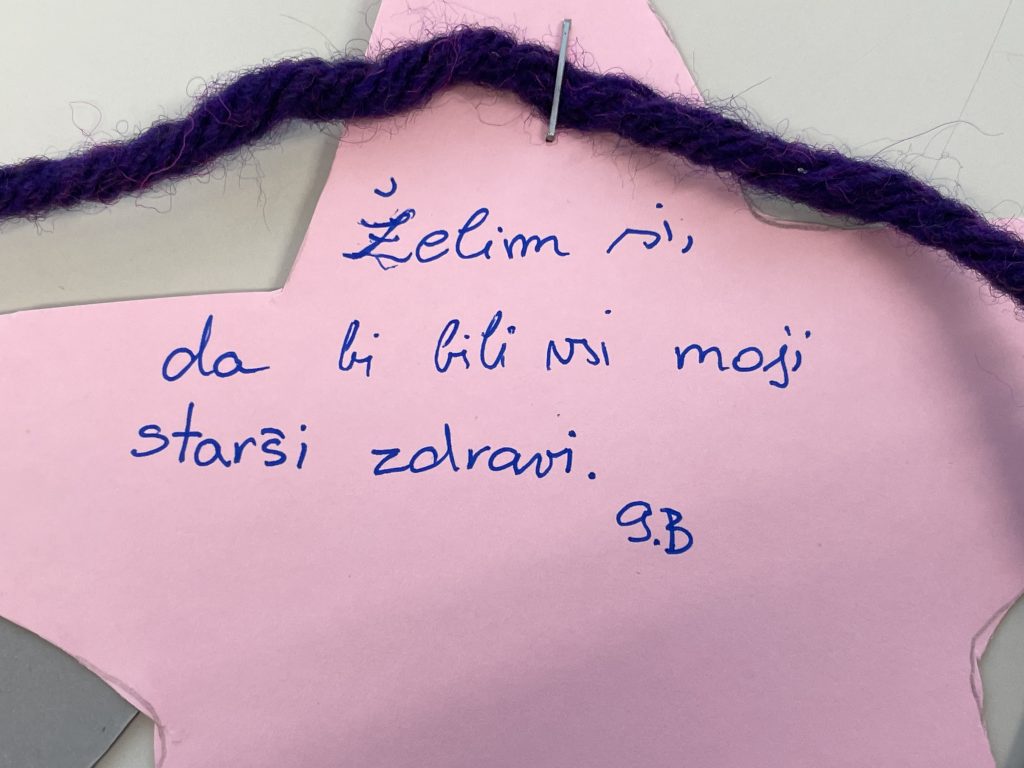 Želim si,
da bi bili vsi moji
starši zdravi.
9.B